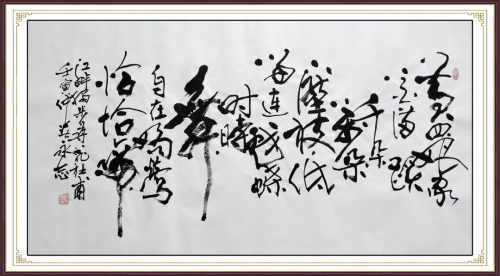 黄四娘家
花满蹊
千朵
万朵
压枝低
留连戏蝶
时時
舞
自在嬌莺
恰恰啼
江畔独步寻花杜甫
壬寅